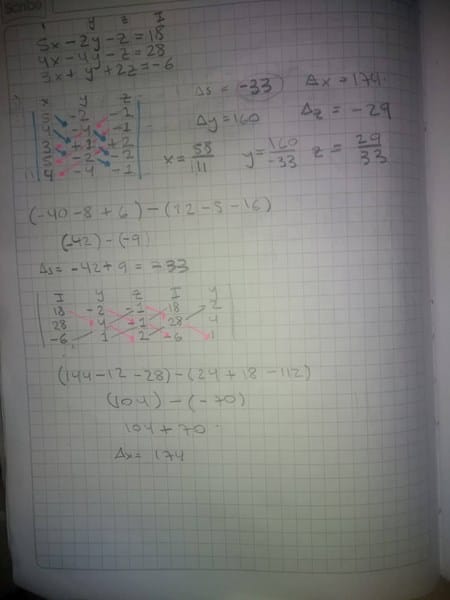 Scribe
x y z I
5x-2y-z=18
4x-4y-z=28
3x+y+2z=-6
x y z
5 -2 -1
4 -4 -1
3 +1 +2
5 -2 -2
4 -4 -1
Δs = -33 Δx = 174
Δy=160 Δz = -29
x= 58/111 y= 160/-33 z = 29/33
(-40-8+6)-(12-5-16)
(-42)-(-9)
Δs= -42+9 = -33
I y z I y
18 -2 -1 18 2
28 4 -1 28 4
-6 1 2 -6 1
(144-12-28)-(24+18-112)
(104)-(-70)
104+70
Δx= 174